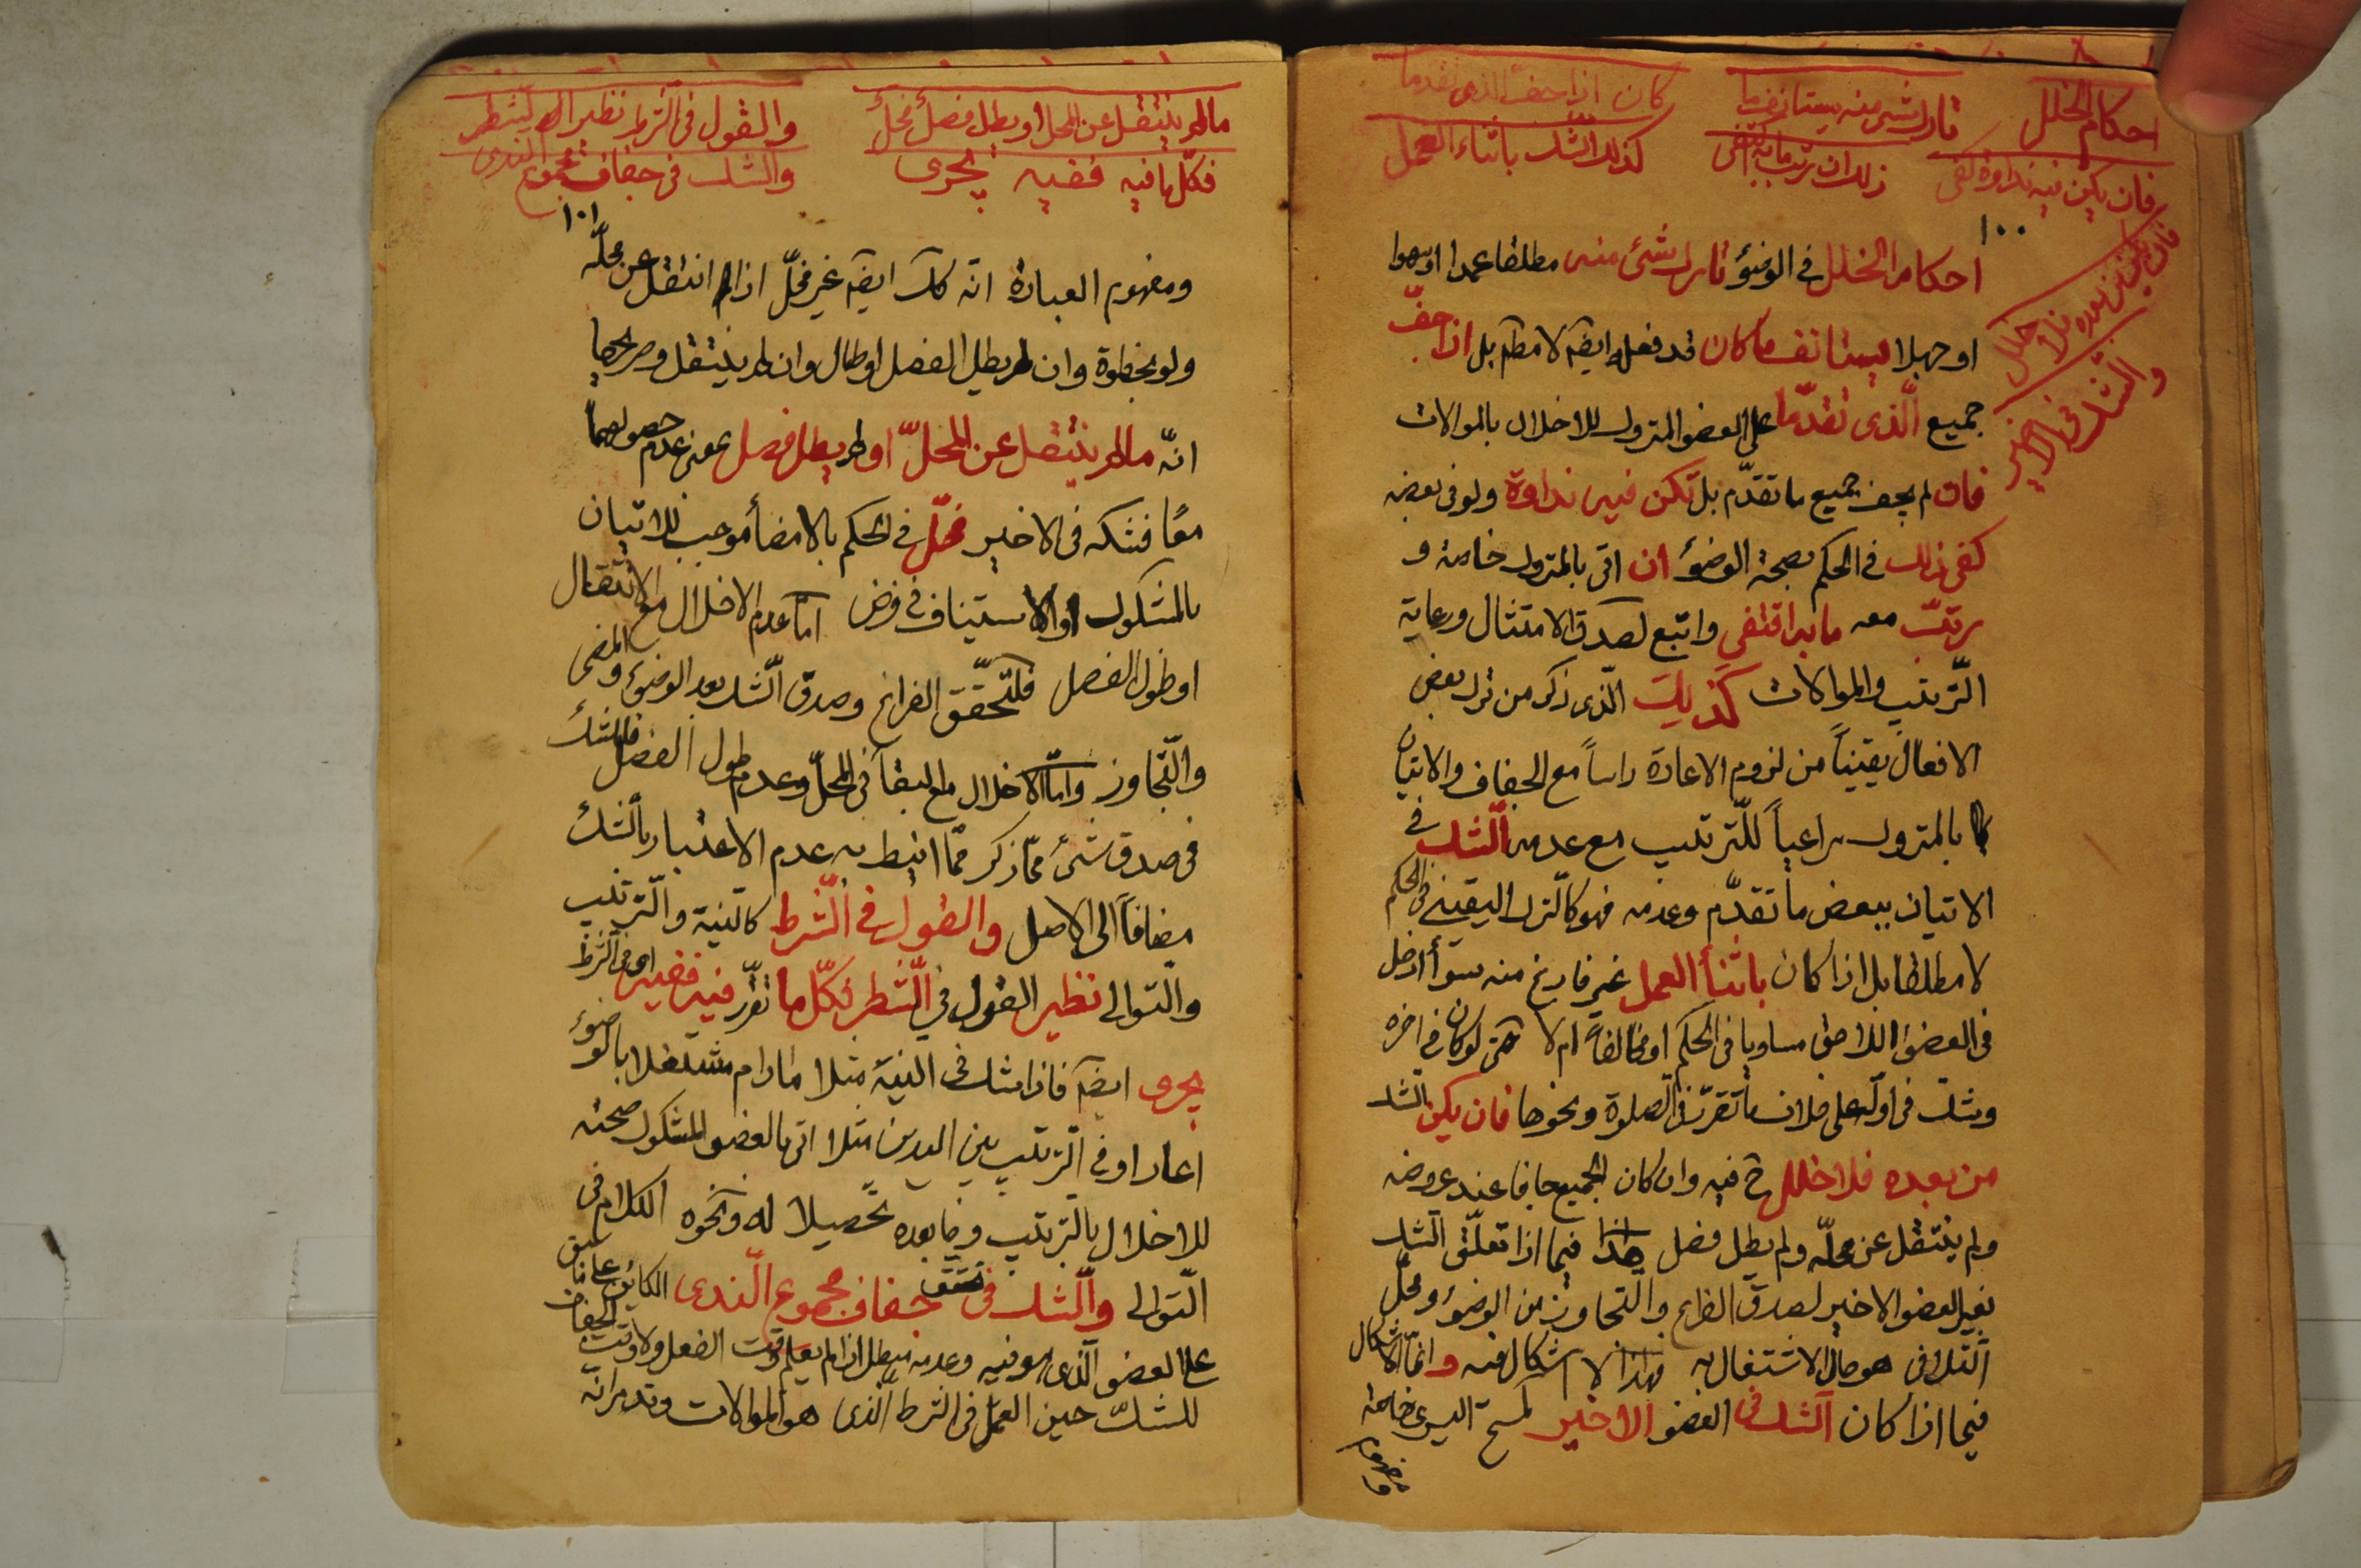 احكام الخلل
تارك شئ منه يستانف ما
كان اذا جف الذى تقدما
فان يكن فيه نداوة كفى
ذلك ان رتب ما به اقتفى
كذلك الشك باثناء العمل
فان يكن من بعده فلا خلل
والشك فى الاخير
١٠٠
احكام الخلل فى الوضوء تارك شئ منه مطلقا عمدا او سهوا
او جهلا يستانف ما كان قد فعله ايضَ لا مطَ بل اذا جفّ
جميع الّذى تقدّما على العضو المتروك للاخلال بالموالات
فان لم يجف جميع ما تقدّم بل تكن فيه نداوة ولو فى بعضه
كفى ذلك فى الحكم بصحة الوضوء ان اتى بالمتروك خاصة و
يرتّب معه ما به اقتفى واتبع لصدق الامتثال ورعاية
التّرتيب والموالات كَذلِكَ الّذى ذكر من ترك بعض
الافعال يقيناً من لزوم الاعادة راساً مع الجفاف والاتيان
بالمتروك مراعياً للتّرتيب مع عدمه الشّك فى
الاتيان ببعض ما تقدّم وعدمه فهو كالترك اليقينى فى الحكم
لا مطلقا بل اذا كان باثنأ العمل غير فارغ منه سوأ ادخل
فى العضو اللاحق مساويا فى الحكم او مخالفاً ام لا حتى لو كان فى اخره
وشك فى اوّله على خلاف ما تقرّر فى الصلوة ونحوها فان يكن الشك
من بعده فلا خلل ح فيه وان كان الجميع جافا عند عروضه
ولم ينتقل عن محلّه ولم يطل فصل هذا فيما اذا تعلّق الشك
بغير العضو الاخير لصدق الفراغ والتجاوز من الوضوء ومحلّ
التّلافى هو حال الاشتغال به فهذا لا اشكال فيه وانّما الاشكال
فيما اذا كان الشك فى العضو الاخير كمسح اليسرى خاصة
ومفهوم
مالم ينتقل عن المحل او يطل فصل مخلّ
والقول فى الشرط نظير الشطر
فكلّ ما فيه ففيه يجرى
والشك فى جفاف مجموع الندى
١٠١
ومفهوم العبارة انّه كَ ايضَ غير مخلّ اذا انتقل عن محلّه
ولو بخطوة وان لم يطل الفصل او طال وان لم ينتقل وصريحها
انّه مالم ينتقل عن المحلّ او لم يطل فصل بمعنى عدم حصولهما
معًا فشكه فى الاخير مخلّ فى الحكم بالامضأ موجب للاتيان
بالمشكوك او الاستيناف فى فرض امّا عدم الاخلال مع الانتقال
او طول الفصل فلتحقّق الفراغ وصدق الشك بعد الوضوء والمضى
والتّجاوز وامّا الاخلال مع البقأ فى المحلّ وعدم طول الفصل فللشك
فى صدق شئ ممّا ذكر ممّا انيط به عدم الاعتبار بالشّك
مضافاً الى الاصل والقول فى الشّرط كالنية والترتيب
والتوالى نظير القول فى الشّطر فكلّ ما تقرّر فيه ففيه اى فى الشرط
يجرى ايضَ فاذا شك فى النيّة مثلا مادام مشتغلا بالوضوء
اعاد او فى الترتيب بين اليدين مثلا اتى بالعضو المشكوك صحته
للاخلال بالترتيب وما بعده تحصيلا له ونحوه الكلام فى
التّوالى والشّك فى جفاف مجموع النّدى الكائن على ما سبق
على العضو الّذى هو فيه وعدمه مبطل اذا لم يعلم وقت الفعل ولا وقت الجفاف
للشكّ حين العمل فى الشرط الّذى هو الموالات وقد مرّ انّه